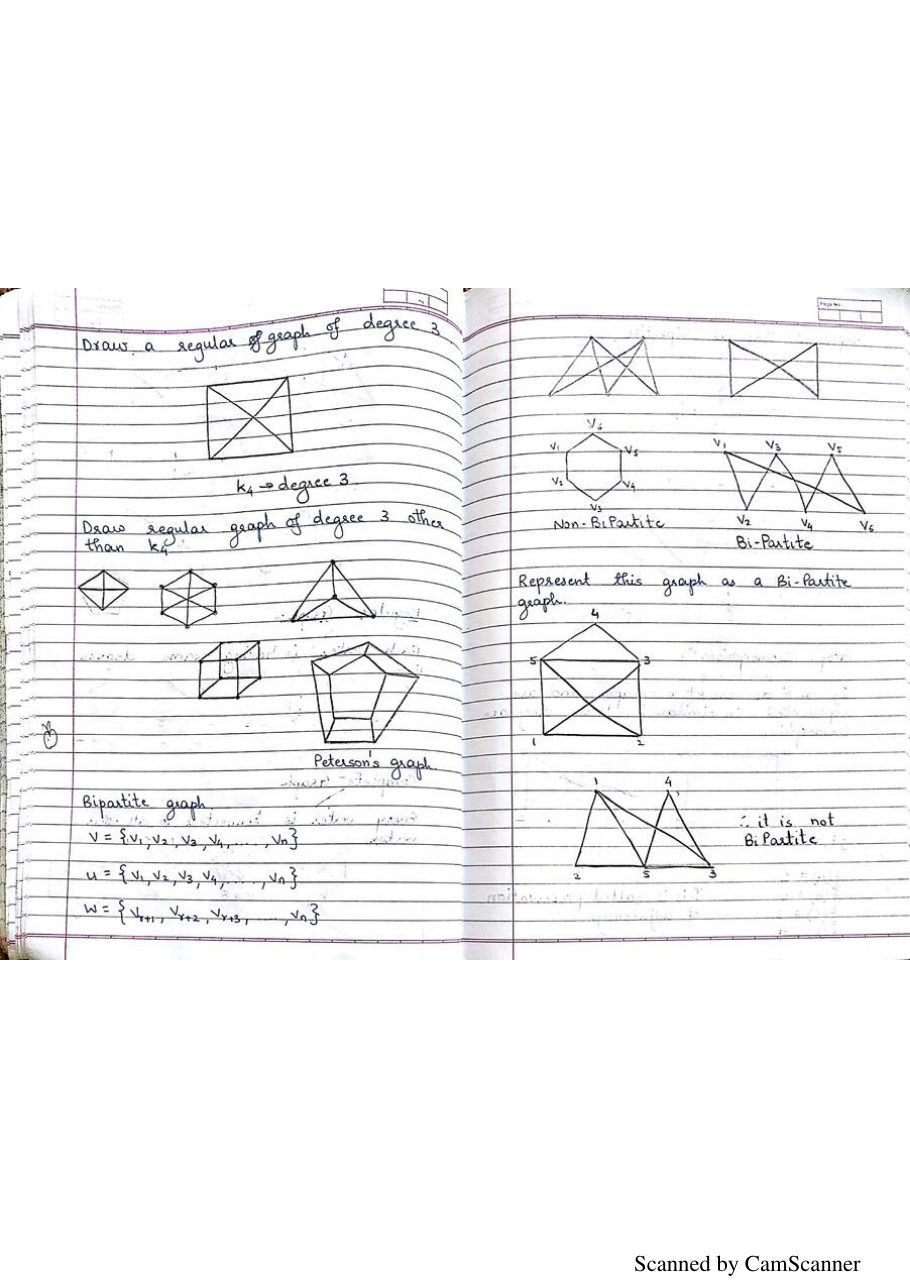 Draw a regular of graph of degree 3
k4 → degree 3
Draw regular graph of degree 3 other
than k4
Peterson's graph.
Bipartite graph.
V = {v1, v2, v3, v4, ...., vn}
u = {v1, v2, v3, v4, ...., vn}
w = {vr+1, vr+2, vr+3, ...., vn}
Page No.
V6
V1 V5
V2 V4
V3
Non-BiPartite
V1 V3 V5
V2 V4 V6
Bi-Partite
Represent this graph as a Bi-Partite
graph.
4
5 3
1 2
1 4
2 5 3
∴ it is not
BiPartite
Scanned by CamScanner